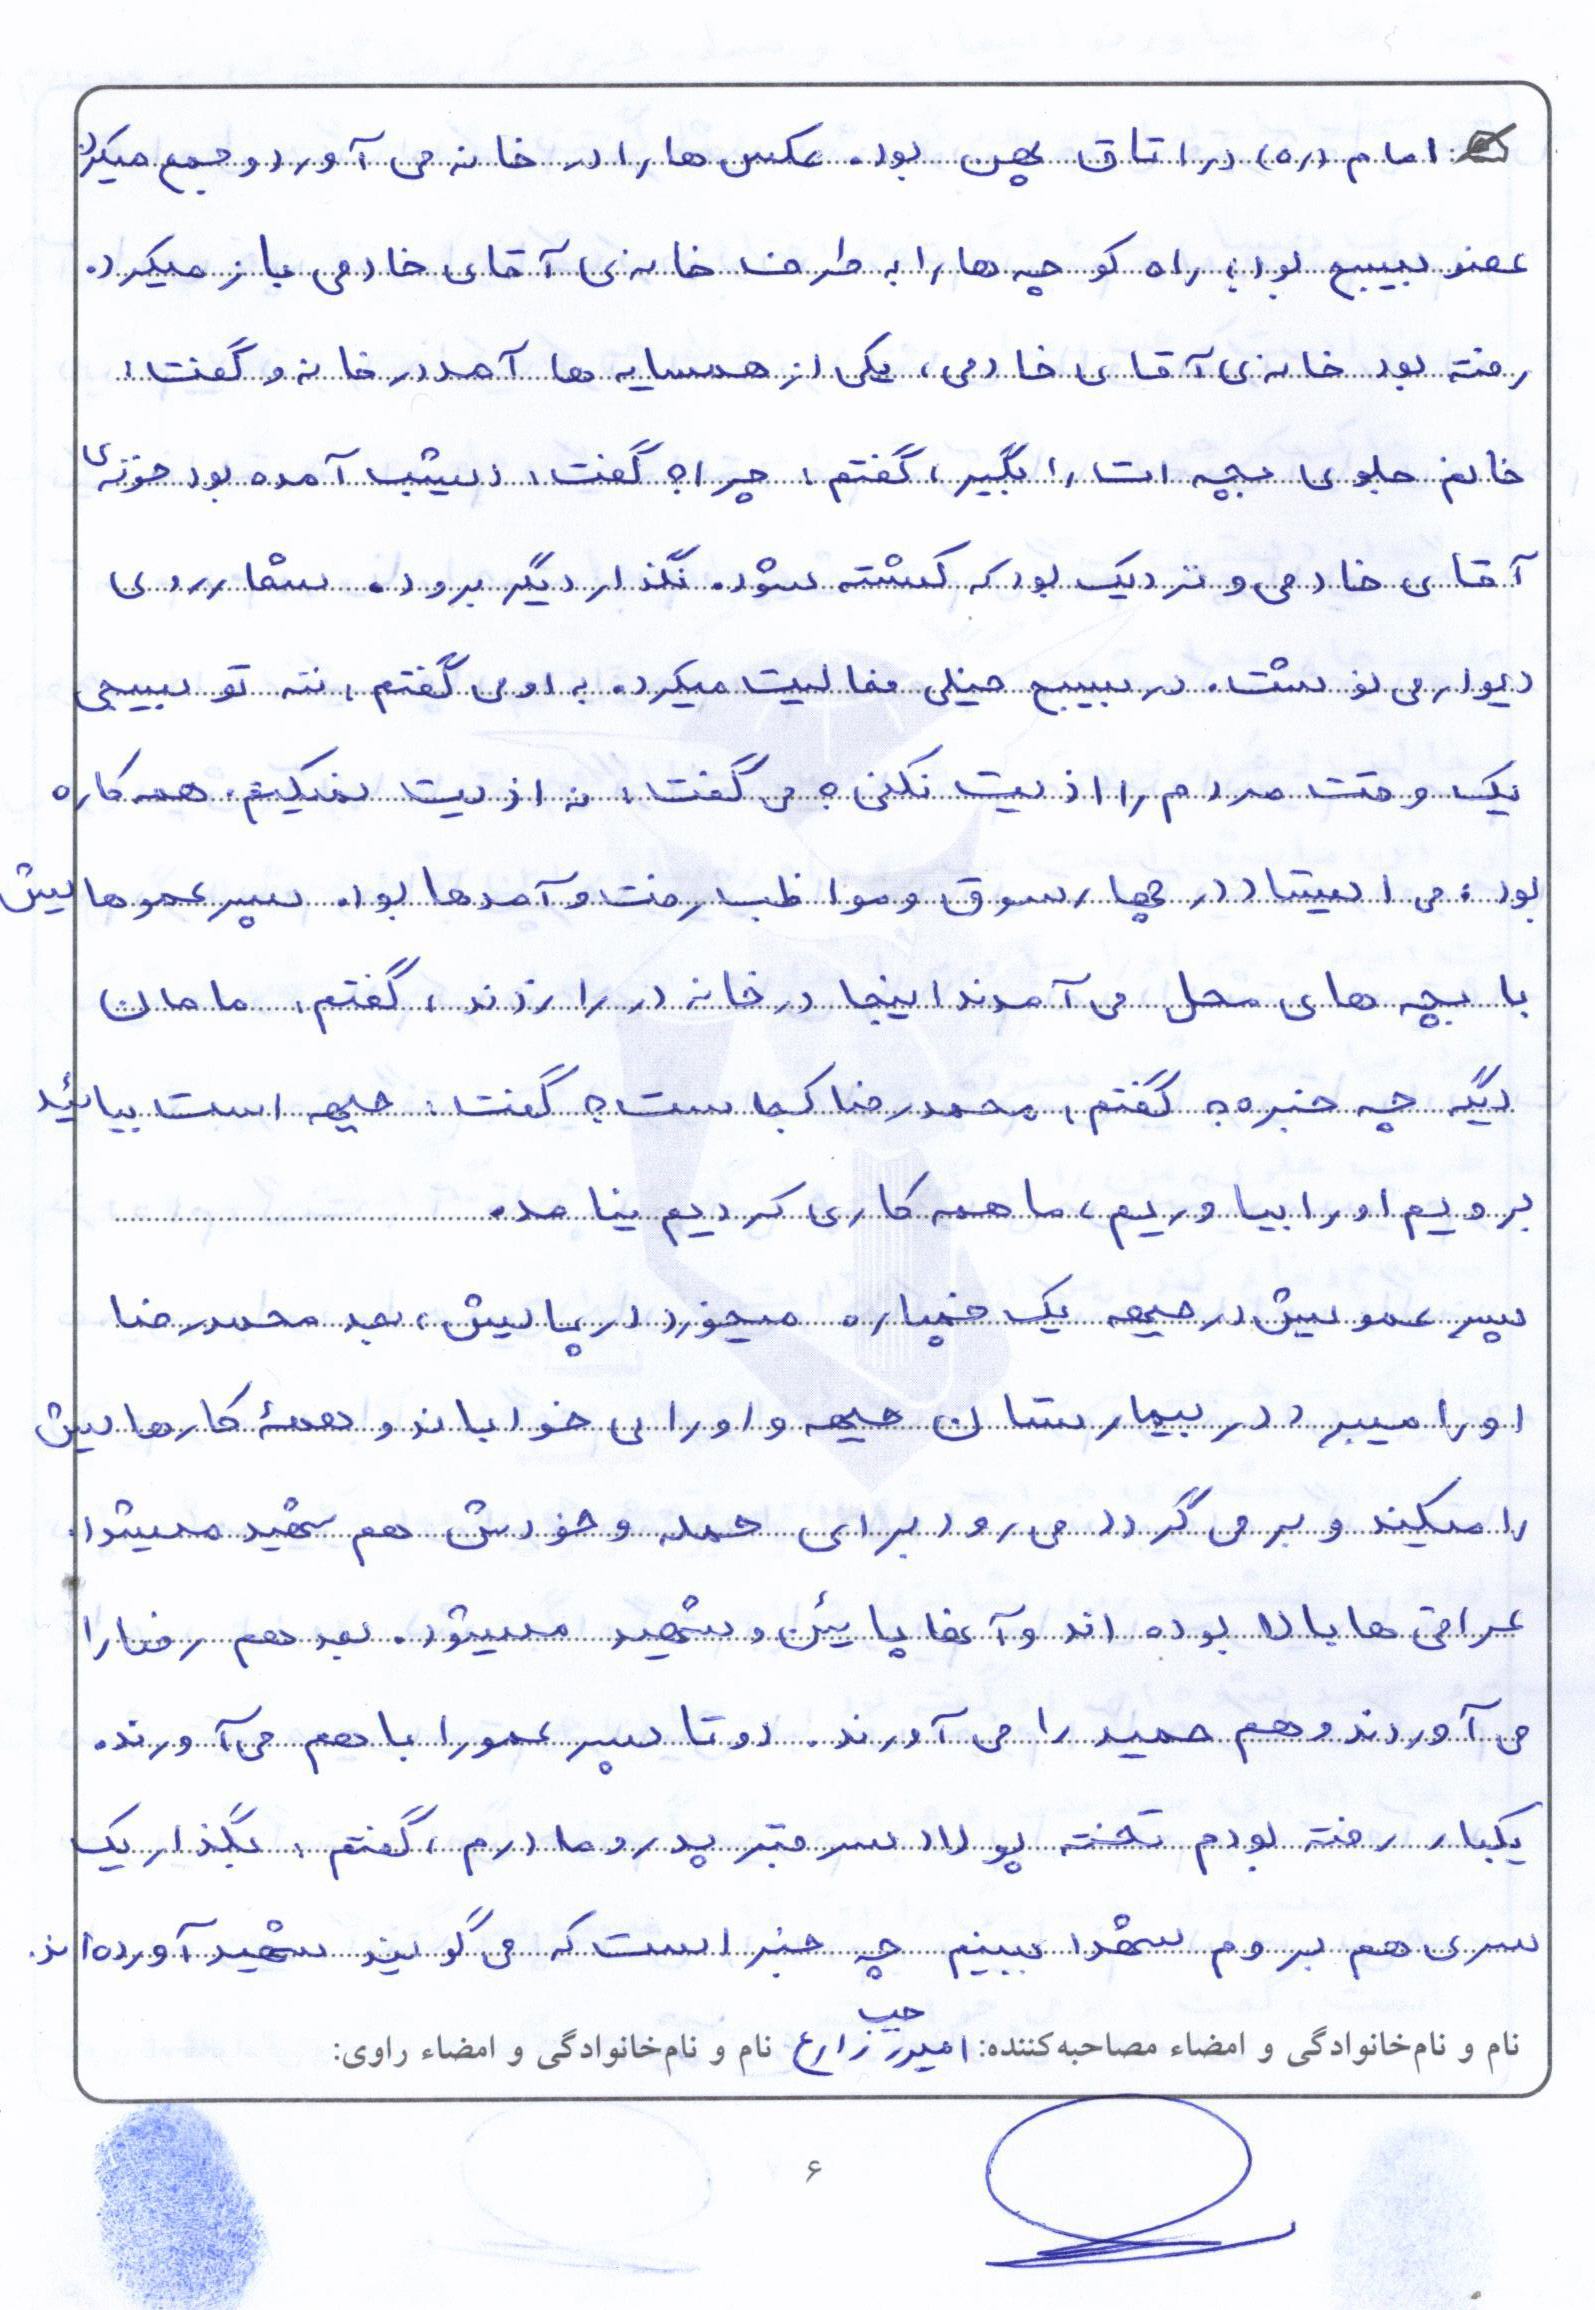 امام (ره) در اتاق پهن بود. عکس ها را در خانه می آورد و جمع میکرد
عضو بسیج بود؛ راه کوچه ها را به طرف خانه‌ی آقای خادمی باز میکرد.
رفته بود خانه‌ی آقای خادمی، یکی از همسایه ها آمد در خانه و گفت:
خانم جلوی بچه ات را بگیر، گفتم: چرا؟ گفت: دیشب آمده بود خونه‌ی
آقای خادمی و نزدیک بود که کشته شود. نگذار دیگر برود. شعار روی
دیوار می نوشت. در بسیج خیلی فعالیت میکرد. به او می گفتم: ننه تو بسیجی
یک وقت مردم را اذیت نکنی؟ می گفت: نه اذیت نمیکنیم. همه کاره
بود؛ می ایستاد در چهارسوق و مواظب رفت و آمدها بود. پسر عموهایش
با بچه های محل می آمدند اینجا در خانه در را زدند، گفتم: مامان
دیگه چه خبره؟ گفتم: محمدرضا کجاست؟ گفت: جبهه است بیائید
برویم او را بیاوریم، ما همه کاری کردیم نیامد.
پسر عمویش در جبهه یک خمپاره میخورد در پایش، بعد محمدرضا
او را میبرد در بیمارستان جبهه و او را می خواباند و همهٔ کارهایش
را میکند و بر می گردد می رود برای حمله و خودش هم شهید میشود.
عراقی ها بالا بوده اند و آنها پایین و شهید میشود. بعد هم رضا را
می آوردند و هم حمید را می آورند. دو تا پسر عمو را با هم می آورند.
یکبار رفته بودم تخته پولاد سر قبر پدر و مادرم، گفتم: بگذار یک
سری هم بروم شهدا ببینم چه خبر است که می گویند شهید آورده اند.
نام و نام‌خانوادگی و امضاء مصاحبه‌کننده: امیر زارع نام و نام‌خانوادگی و امضاء راوی:
۶